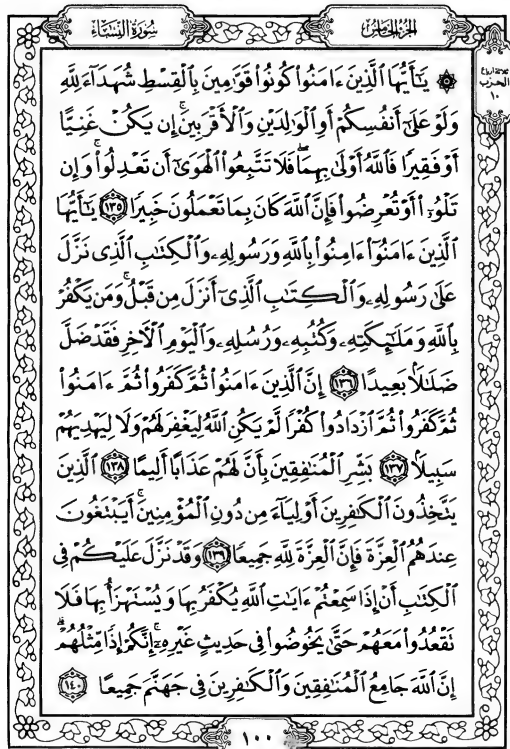 الجزء الخامس
سورة النساء
ثلاثة أرباع
الحزب
١٠
۞ يَٰٓأَيُّهَا ٱلَّذِينَ ءَامَنُوا۟ كُونُوا۟ قَوَّٰمِينَ بِٱلْقِسْطِ شُهَدَآءَ لِلَّهِ
وَلَوْ عَلَىٰٓ أَنفُسِكُمْ أَوِ ٱلْوَٰلِدَيْنِ وَٱلْأَقْرَبِينَ ۚ إِن يَكُنْ غَنِيًّا
أَوْ فَقِيرًا فَٱللَّهُ أَوْلَىٰ بِهِمَا ۖ فَلَا تَتَّبِعُوا۟ ٱلْهَوَىٰٓ أَن تَعْدِلُوا۟ ۚ وَإِن
تَلْوُۥٓا۟ أَوْ تُعْرِضُوا۟ فَإِنَّ ٱللَّهَ كَانَ بِمَا تَعْمَلُونَ خَبِيرًا ١٣٥ يَٰٓأَيُّهَا
ٱلَّذِينَ ءَامَنُوٓا۟ ءَامِنُوا۟ بِٱللَّهِ وَرَسُولِهِۦ وَٱلْكِتَٰبِ ٱلَّذِى نَزَّلَ
عَلَىٰ رَسُولِهِۦ وَٱلْكِتَٰبِ ٱلَّذِىٓ أَنزَلَ مِن قَبْلُ ۚ وَمَن يَكْفُرْ
بِٱللَّهِ وَمَلَٰٓئِكَتِهِۦ وَكُتُبِهِۦ وَرُسُلِهِۦ وَٱلْيَوْمِ ٱلْءَاخِرِ فَقَدْ ضَلَّ
ضَلَٰلًۢا بَعِيدًا ١٣٦ إِنَّ ٱلَّذِينَ ءَامَنُوا۟ ثُمَّ كَفَرُوا۟ ثُمَّ ءَامَنُوا۟
ثُمَّ كَفَرُوا۟ ثُمَّ ٱزْدَادُوا۟ كُفْرًا لَّمْ يَكُنِ ٱللَّهُ لِيَغْفِرَ لَهُمْ وَلَا لِيَهْدِيَهُمْ
سَبِيلًۢا ١٣٧ بَشِّرِ ٱلْمُنَٰفِقِينَ بِأَنَّ لَهُمْ عَذَابًا أَلِيمًا ١٣٨ ٱلَّذِينَ
يَتَّخِذُونَ ٱلْكَٰفِرِينَ أَوْلِيَآءَ مِن دُونِ ٱلْمُؤْمِنِينَ ۚ أَيَبْتَغُونَ
عِندَهُمُ ٱلْعِزَّةَ فَإِنَّ ٱلْعِزَّةَ لِلَّهِ جَمِيعًا ١٣٩ وَقَدْ نَزَّلَ عَلَيْكُمْ فِى
ٱلْكِتَٰبِ أَنْ إِذَا سَمِعْتُمْ ءَايَٰتِ ٱللَّهِ يُكْفَرُ بِهَا وَيُسْتَهْزَأُ بِهَا فَلَا
تَقْعُدُوا۟ مَعَهُمْ حَتَّىٰ يَخُوضُوا۟ فِى حَدِيثٍ غَيْرِهِۦٓ ۚ إِنَّكُمْ إِذًا مِّثْلُهُمْ ۗ
إِنَّ ٱللَّهَ جَامِعُ ٱلْمُنَٰفِقِينَ وَٱلْكَٰفِرِينَ فِى جَهَنَّمَ جَمِيعًا ١٤٠
١٠٠